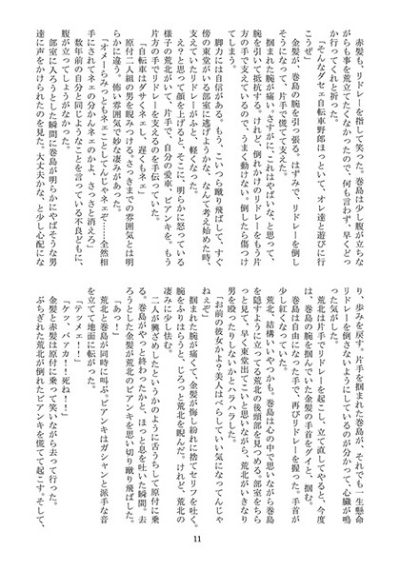 赤髪も、リドレーを指して笑った。巻島は少し腹が立ちな
がらも事を荒立てたくなかったので、何も言わず、早くどっ
か行ってくれと祈った。
「そんなダセェ自転車野郎ほっといて、オレ達と遊びに行
こうぜ」
金髪が、巻島の腕を引っ張る。はずみで、リドレーを倒し
そうになって、片手で慌てて支えた。
掴まれた腕が痛い。さすがに、これはやばいな、と思って、
腕を引いて抵抗する。けれど、倒れかけのリドレーをもう片
方の手で支えているので、うまく動けない。倒したら傷つけ
てしまう。
脚力には自信がある。もう、こいつら蹴り飛ばして、すぐ
傍の東堂がいる部室に逃げようかな、なんて考え始めた時、
支えていたリドレーがふと、軽くなった。
えっ？と思って顔を上げると、そこに、明らかに怒っている
様子の荒北がいて、片手で、自分の愛車、ビアンキを、もう
片方の手でリドレーを支えるのを手伝っていた。
「自転車はダサくネェし、遅くもネェ」
原付二人組の男を睨みつける。さっきまでの雰囲気とは明
らかに違う。怖い雰囲気で妙な凄みがあった。
「オメーらみっともネェことしてんじゃネェぞ……全然相
手にされてネェの分かんネェのかよ、さっさと消えろ」
数年前の自分と同じようなことを言っている不良どもに、
腹が立ってしょうがなかった。
部室に入ろうとした瞬間に巻島が明らかにやばそうな男
達に声をかけられたのを見た。大丈夫かな、と少し心配にな
り、歩みを戻す。片手を掴まれた巻島が、それでも一生懸命
リドレーを倒さないようにしているのが分かって、心臓が鳴
った気がした。
荒北は片手でリドレーを起こし、立て直してやると、今度
は、巻島の腕を掴んでいた金髪の手首をグイと、掴む。
巻島は自由になった手で、再びリドレーを握った。手首が
少し紅くなっていた。
荒北、結構いいやつかも。巻島は心の中で思いながら巻島
を隠すように立ってる荒北の後頭部を見つめる。部室をちら
っと見て、早く東堂出てこいと思いながら、荒北がいきなり
男を殴ったりしないかとハラハラした。
「お前の彼女かよ？美人はべらしていい気になってんじゃ
ねぇぞ」
掴まれた腕が痛くて、金髪が悔し紛れに捨てセリフを吐く。
腕をふりはらうと、じろっと荒北を睨んだ。けれど、荒北の
凄みに少し怯む。
二人が興ざめしたというかのように舌うちして原付に乗
る。巻島がやっと終わったかと、ほっと息を吐いた瞬間。去
ろうとした金髪が荒北のビアンキを思い切り蹴り飛ばした。
「あっ！」
荒北と巻島が同時に叫ぶ。ビアンキはガシャンと派手な音
を立てて地面に転がった。
「テッメェー！」
「ケッ、バァカ！！死ね！！」
金髪と赤髪は原付に乗って笑いながら去って行った。
ぶちぎれた荒北が倒れたビアンキを慌てて起こす。そして、
11